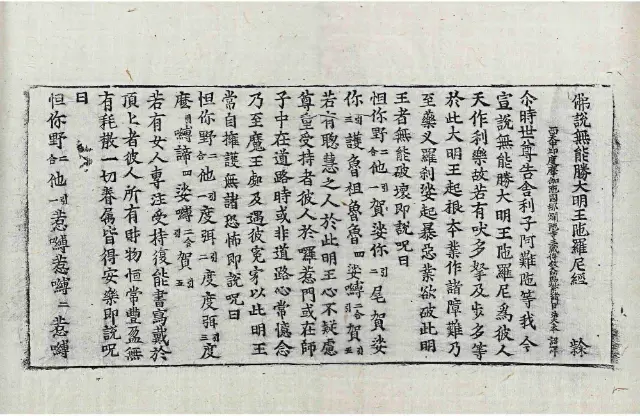 佛說無能勝大明王陁羅尼經
西天中印度摩伽陁國那爛陁寺三藏 詔譯
尒時世尊告舍利子阿難陁等我今
宣說無能勝大明王陁羅尼為彼人
天作利樂故若有吠多拏及步多等
於此大明王起根本業作諸障難乃
至藥叉羅剎娑起暴惡業欲破此明
王者無能破壞即說呪曰
怛你野二合他引一賀娑你引二尾賀娑
你引三護魯祖魯魯四娑嚩二合賀引五
若有聰慧之人於此明王心不疑慮
尊重受持者彼人於囉惹門或在師
子中在道路時或非道路心常憶念
乃至魔王處及遇彼冤家以此明王
當自擁護無諸恐怖即說呪曰
怛你野二合他引一度弭引二度度弭引三度
麽引嚩諦四娑嚩二合賀引五
若有女人專注受持復能書寫戴於
頂上者彼人所有財物恒常豐盈無
有耗散一切眷屬皆得安樂即說呪
曰
怛你野二合他引一惹嚩惹嚩二惹嚩